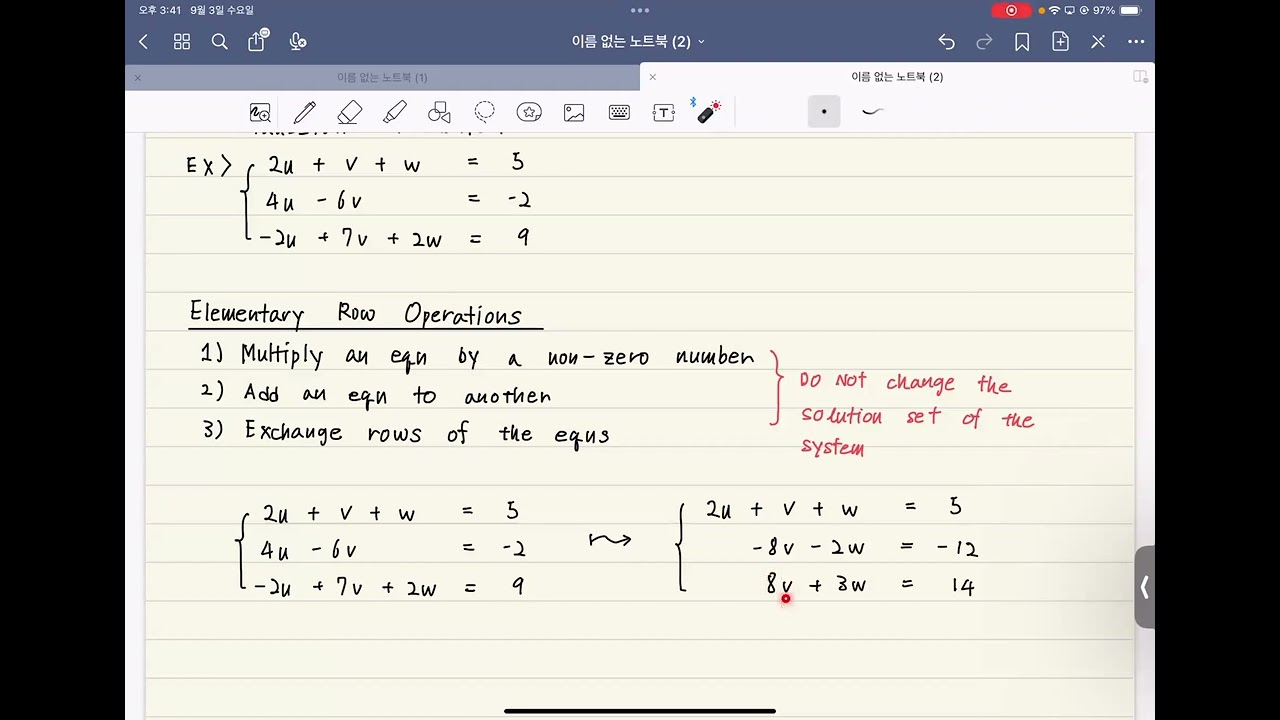 오후 3:41 9월 3일 수요일
97%
이름 없는 노트북 (2)
이름 없는 노트북 (1)
이름 없는 노트북 (2)
EX> 2u + v + w = 5
4u - 6v = -2
-2u + 7v + 2w = 9
Elementary Row Operations
1) Multiply an eqn by a non-zero number
2) Add an eqn to another
3) Exchange rows of the eqns
Do Not change the
solution set of the
system
2u + v + w = 5
4u - 6v = -2
-2u + 7v + 2w = 9
2u + v + w = 5
-8v - 2w = -12
8v + 3w = 14